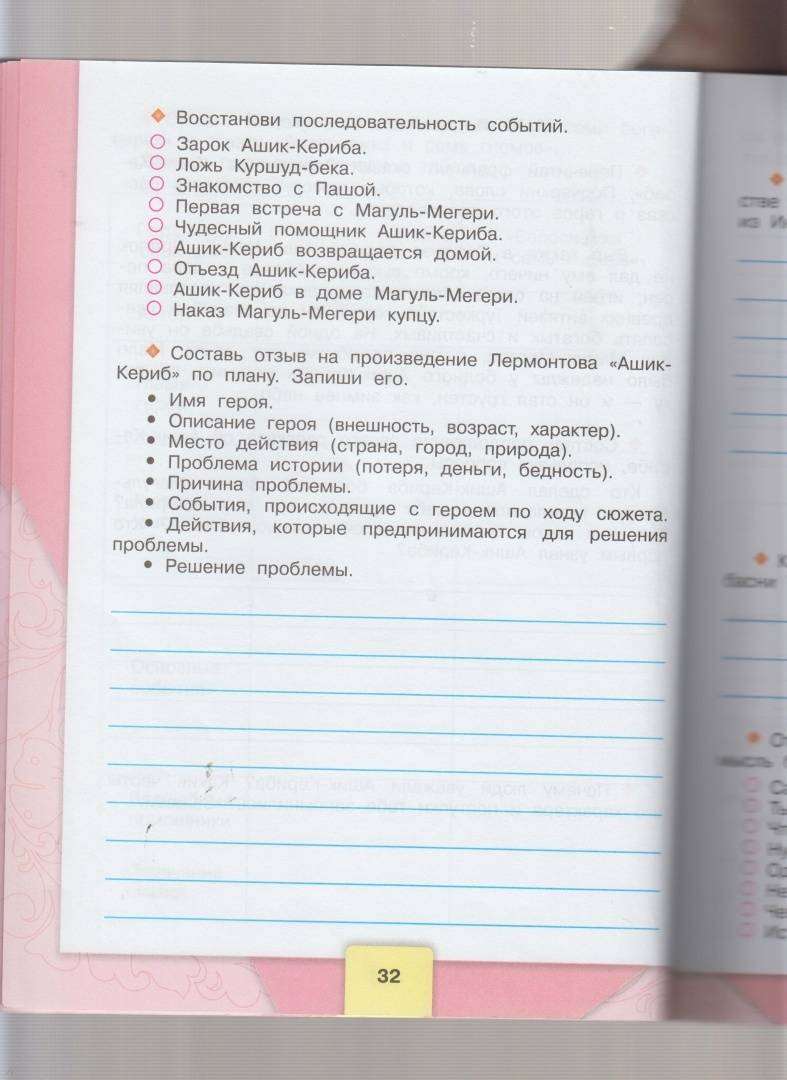 Восстанови последовательность событий.
Зарок Ашик-Кериба.
Ложь Куршуд-бека.
Знакомство с Пашой.
Первая встреча с Магуль-Мегери.
Чудесный помощник Ашик-Кериба.
Ашик-Кериб возвращается домой.
Отъезд Ашик-Кериба.
Ашик-Кериб в доме Магуль-Мегери.
Наказ Магуль-Мегери купцу.
Составь отзыв на произведение Лермонтова «Ашик-
Кериб» по плану. Запиши его.
• Имя героя.
• Описание героя (внешность, возраст, характер).
• Место действия (страна, город, природа).
• Проблема истории (потеря, деньги, бедность).
• Причина проблемы.
• События, происходящие с героем по ходу сюжета.
• Действия, которые предпринимаются для решения
проблемы.
• Решение проблемы.
32
стве
из
басни
мысль